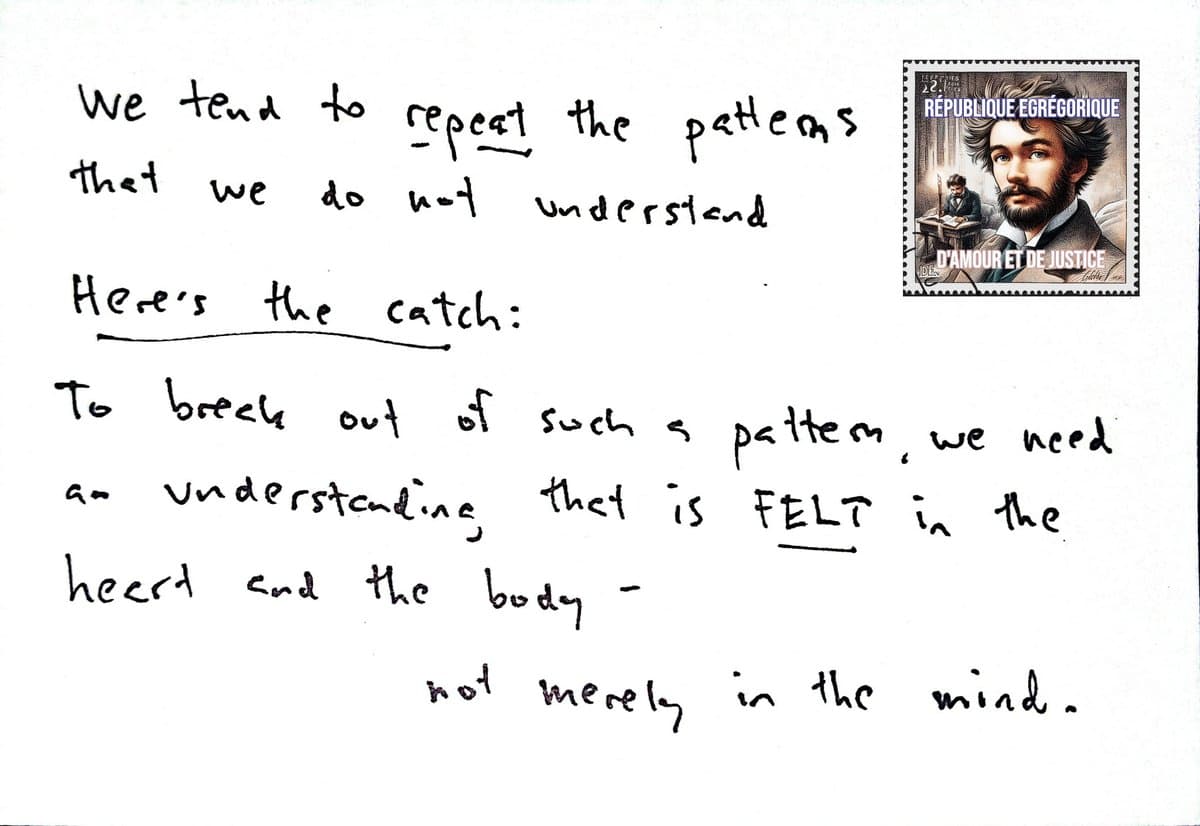 We tend to repeat the patterns
that we do not understand
RÉPUBLIQUE EGRÉGORÏQUE
D'AMOUR ET DE JUSTICE
Here's the catch:
To break out of such a pattern, we need
an understanding that is FELT in the
heart and the body -
not merely in the mind.